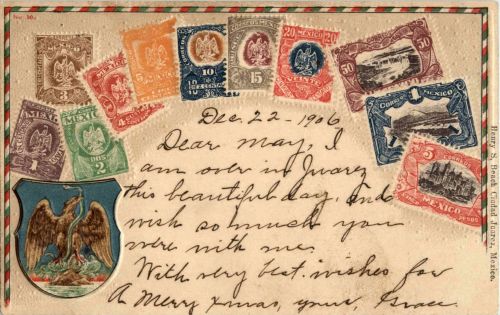 No. 30.
3
1
2
4
5
10
15
MEXICO
20 20
50 50
MEXICO
1 1
5
MEXICO
PESOS
Dec. 22 - 1906
Dear May, I
am over in Juarez
this beautiful day, and
wish so much you
were with me.
With very best wishes for
A Merry Xmas, yours, Grace.
Henry S. Beach, Ciudad Juarez, Mexico.